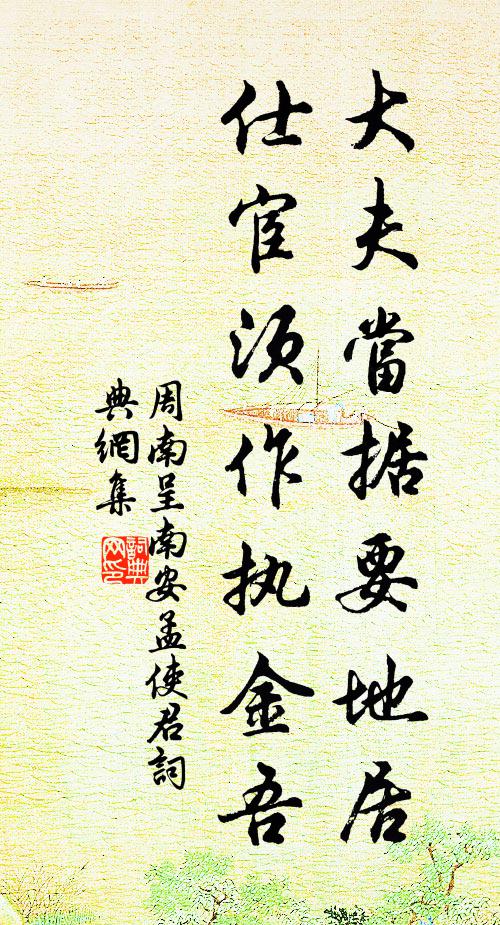 大夫當据要地居
仕宦须作执金吾
周南呈南安孟使君詞
典網集
詞典
网印